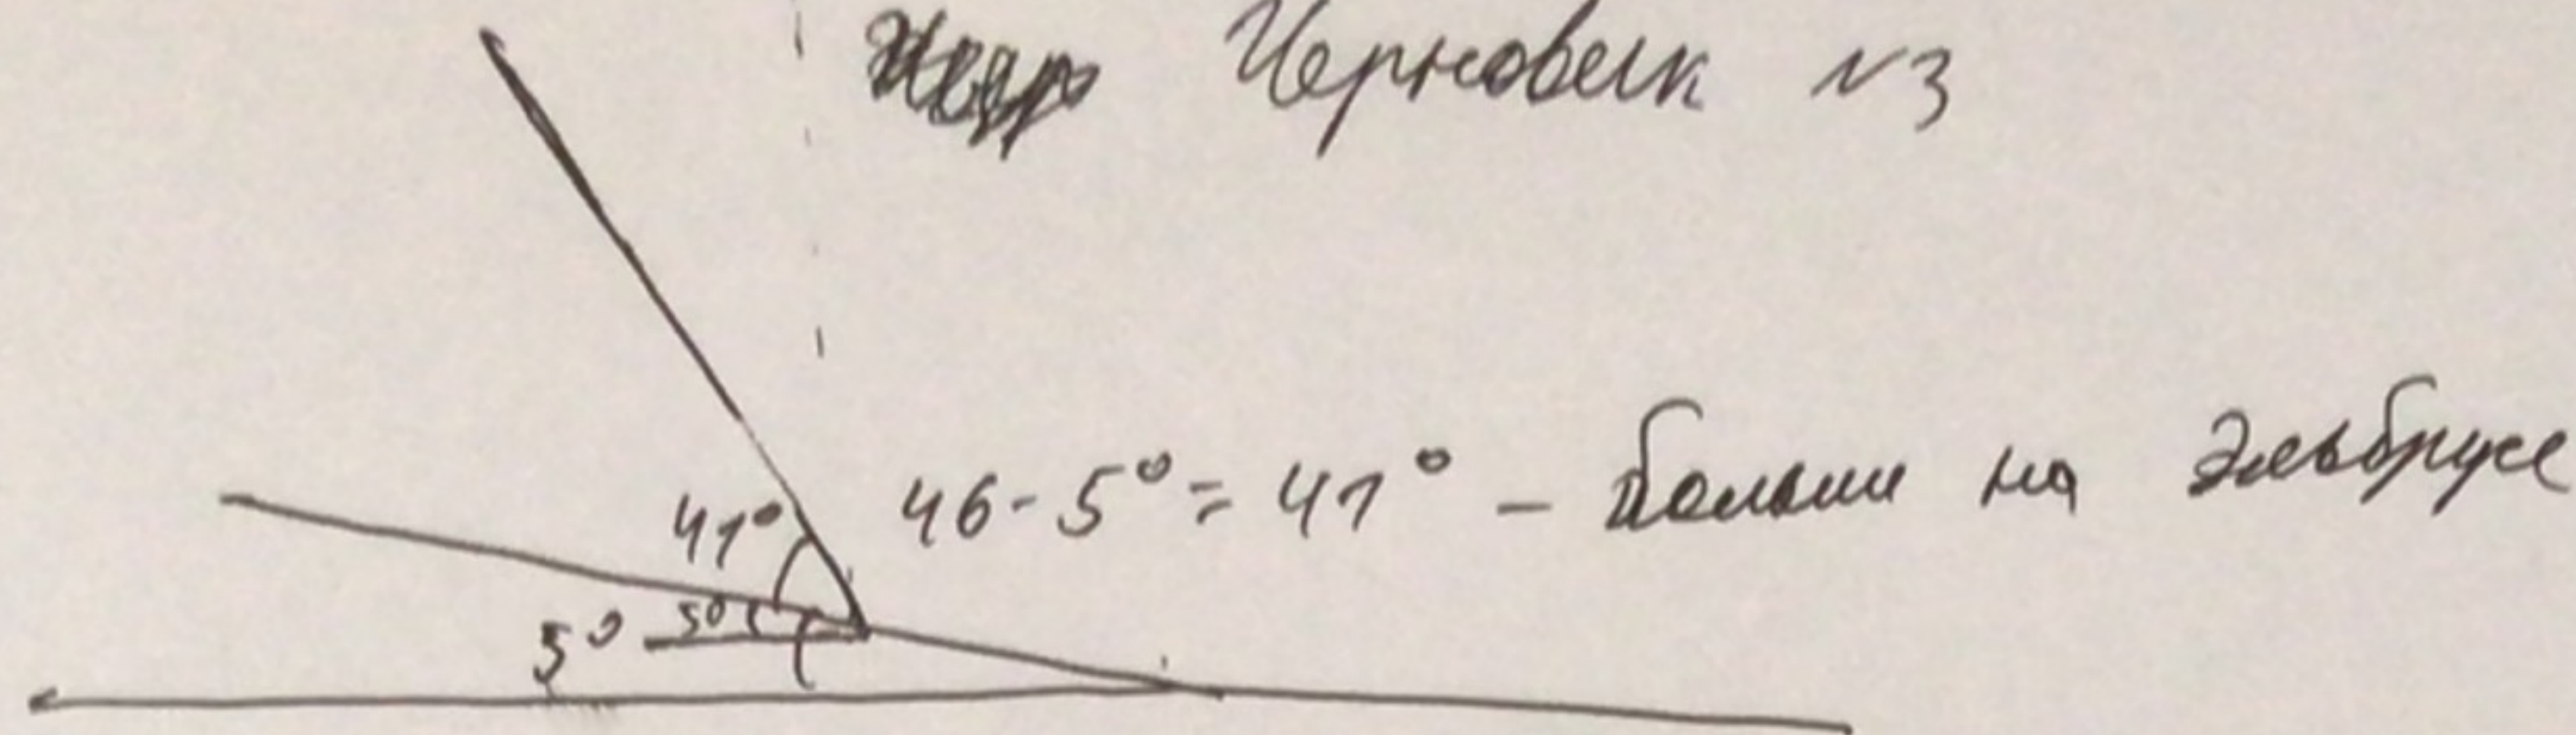 Черновик №3
46-5°= 41° – больше на Эльбрусе
41°
5° 5°